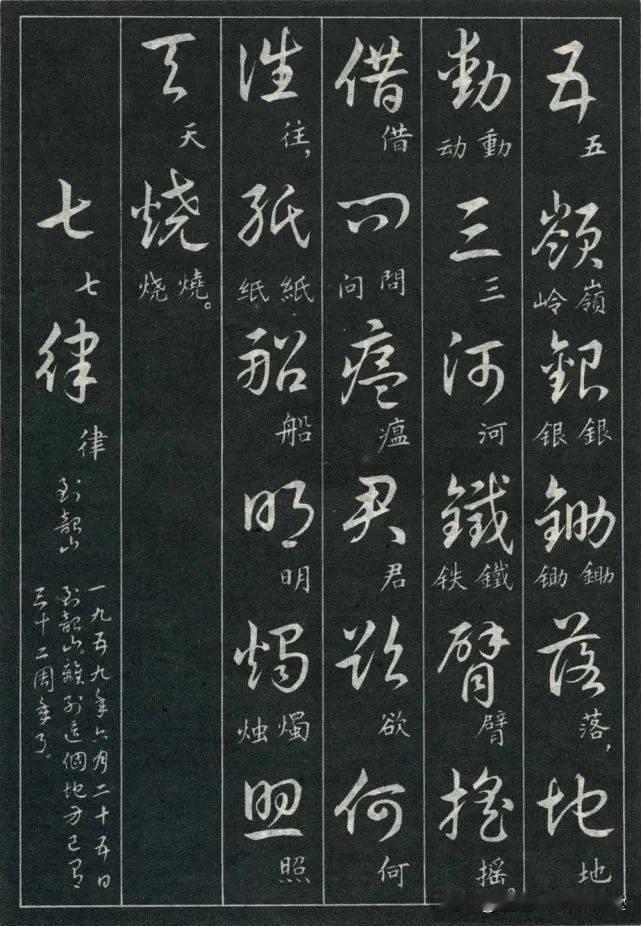 五嶺銀鋤落地
五 嶺岭 銀银 鋤锄 落， 地
動三河鐵臂摇
動动 三 河 鐵铁 臂 摇。
借問瘟君欲何
借 問问 瘟 君 欲 何
往紙船明燭照
往， 紙纸 船 明 燭烛 照
天燒
天 燒。烧
七律
七 律
到韶山
一九五九年六月二十五日
到韶山離别這個地方已有
三十二周年了。